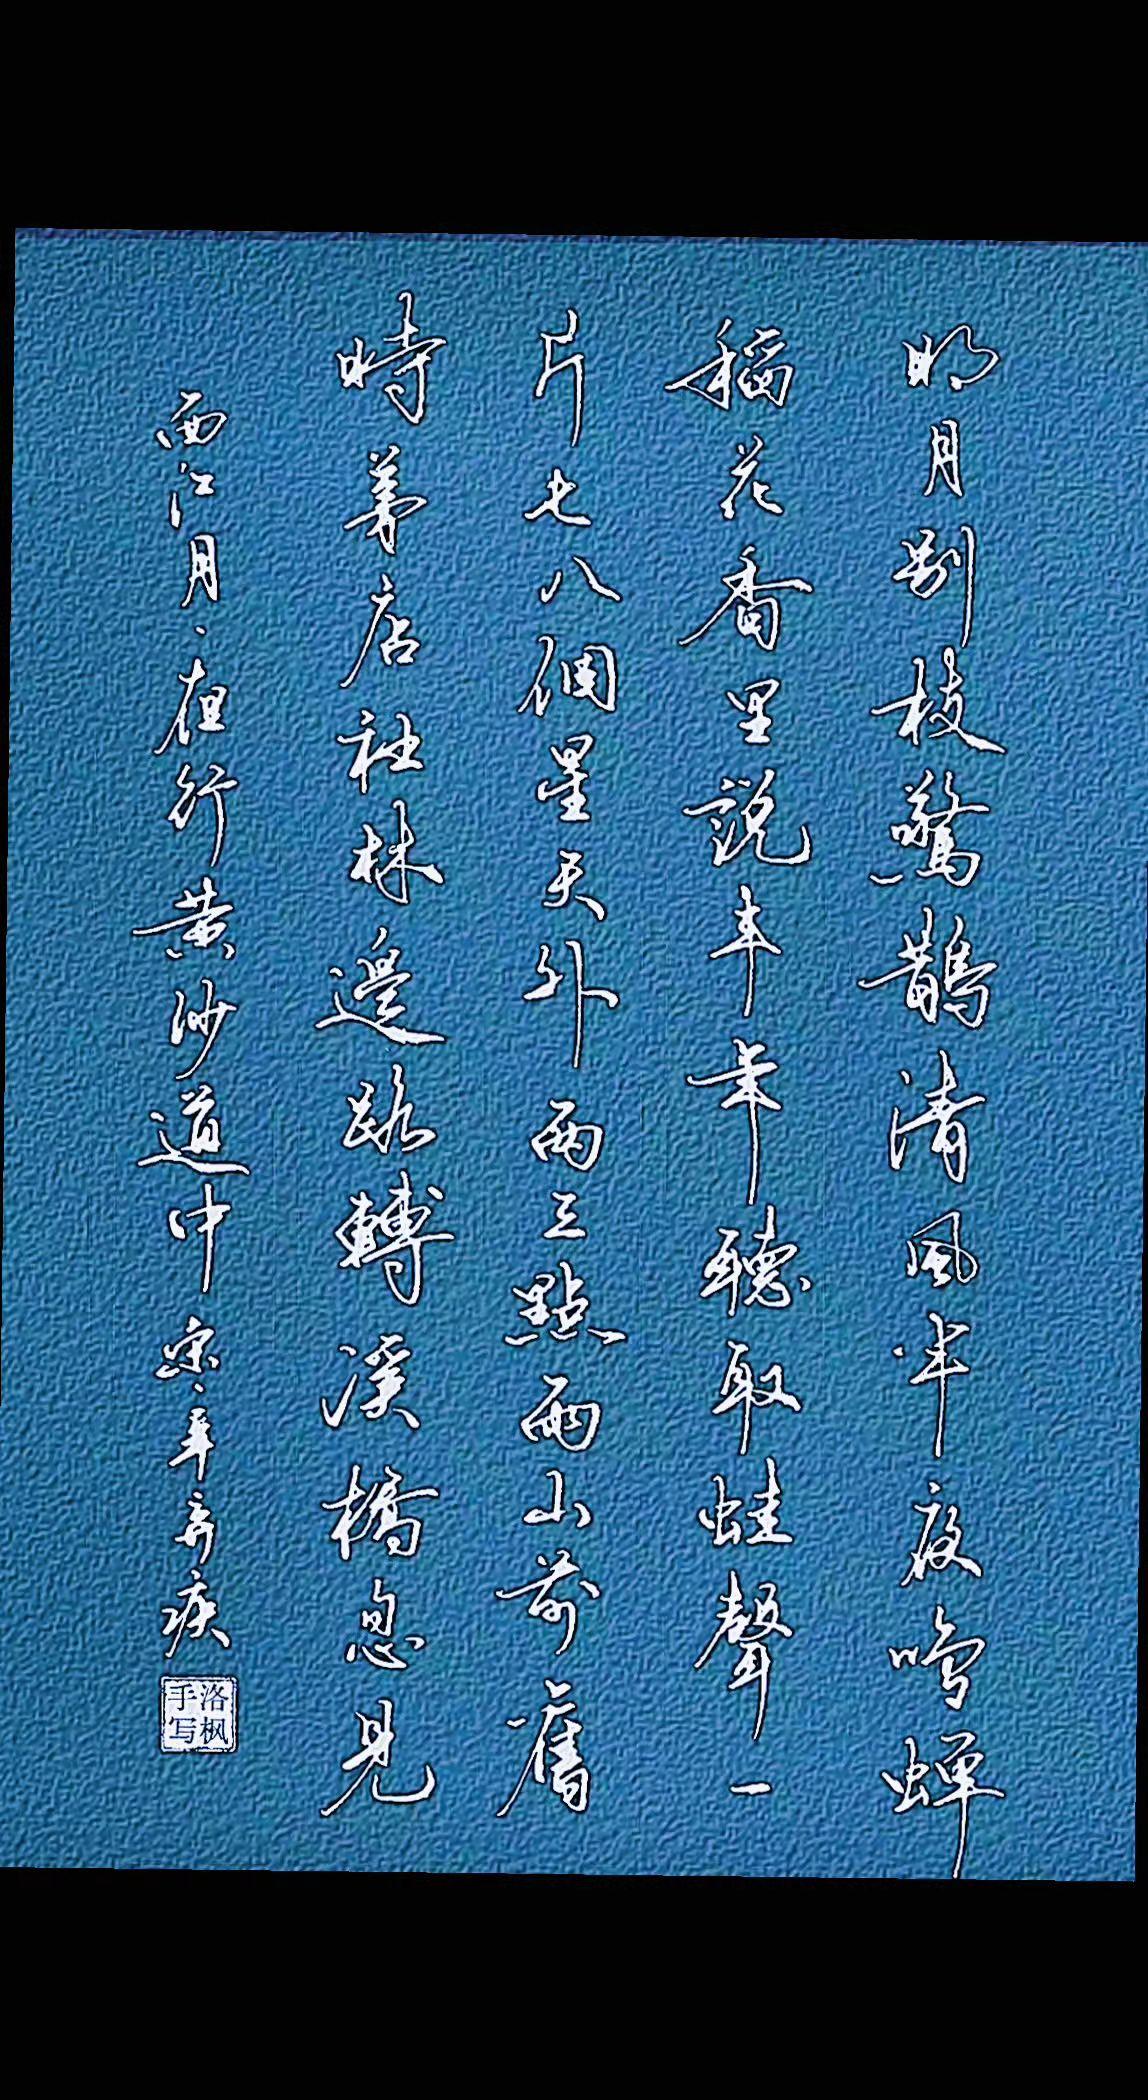 明月别枝驚鵲清風半夜鳴蝉
稻花香里説丰年聽取蛙聲一
片七八個星天外兩三點雨山前舊
時茅店社林邊路轉溪橋忽見
西江月·夜行黄沙道中宋·辛弃疾
洛枫
手写